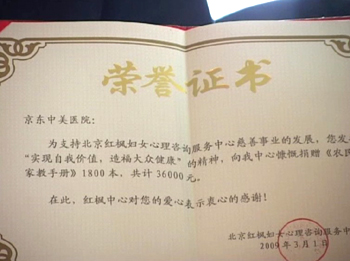 荣誉证书
京东中美医院:
为支持北京红枫妇女心理咨询服务中心慈善事业的发展,您发
“实现自我价值,造福大众健康”的精神,向我中心慷慨捐赠《农民
家教手册》1800本,共计36000元。
在此,红枫中心对您的爱心表示衷心的感谢!
北京红枫妇女心理咨询服务中
2009年3月1日